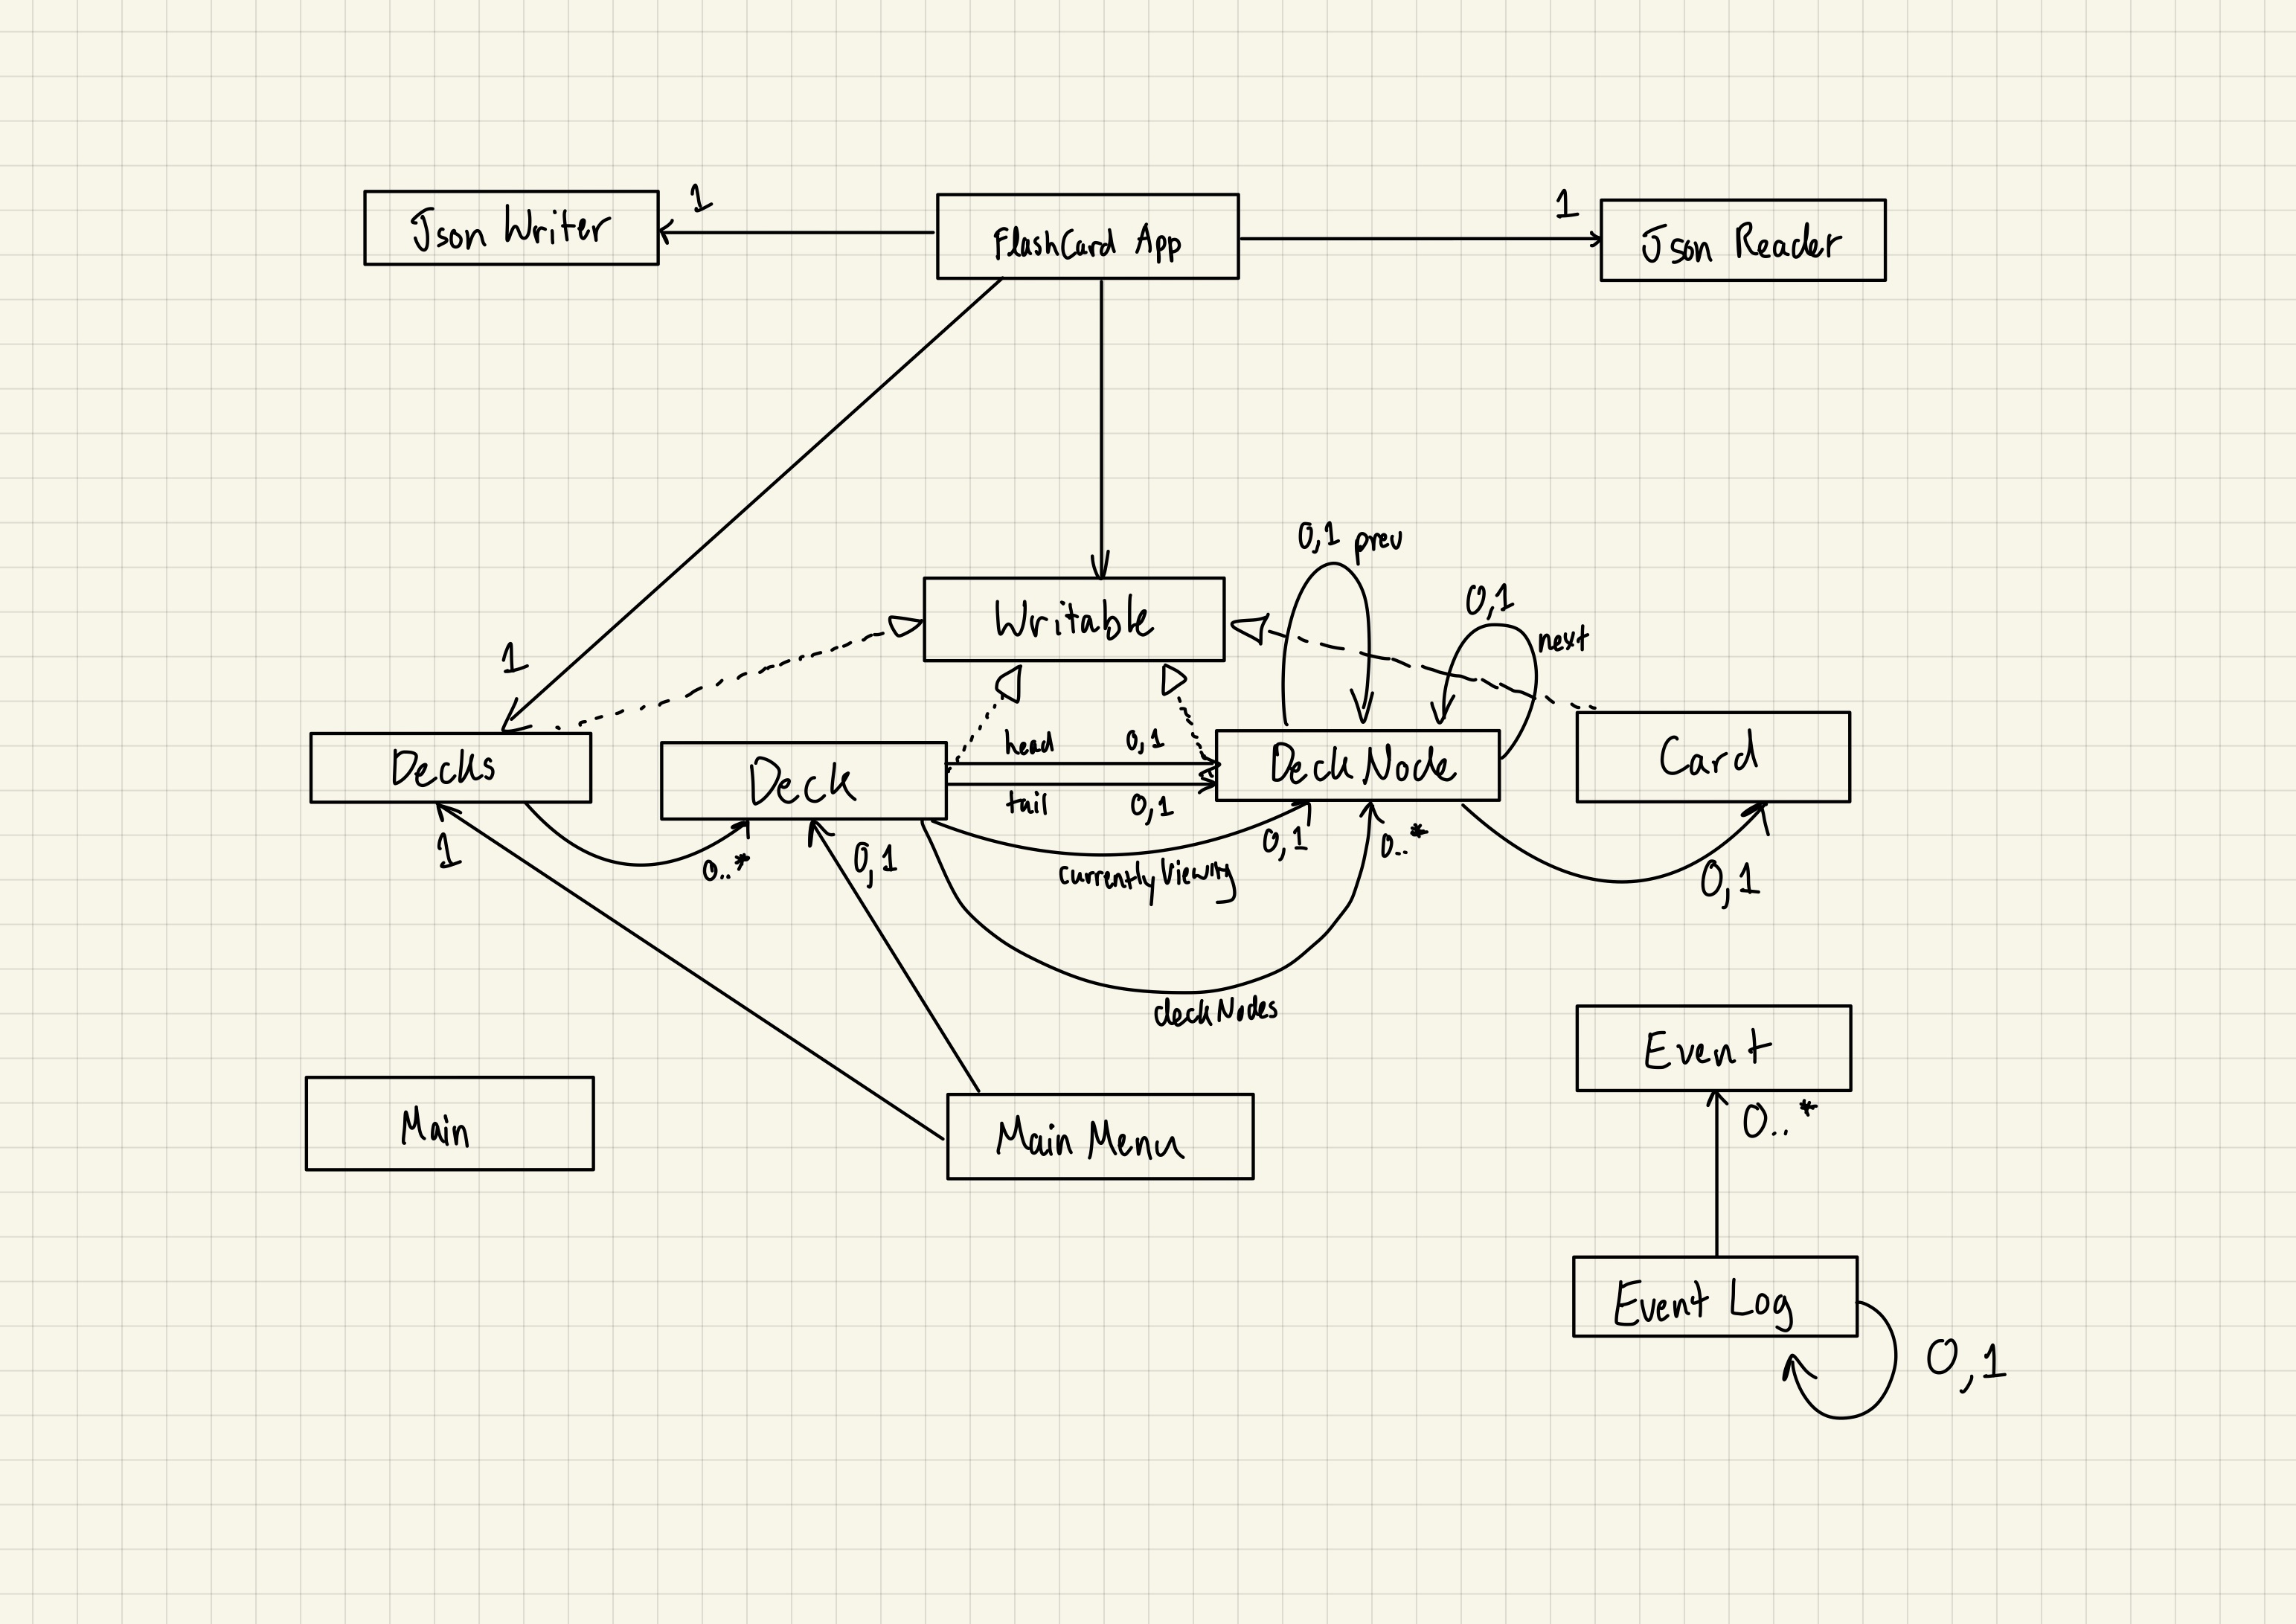 Json Writer
1
FlashCard App
1
Json Reader
0,1 prev
0,1
next
Writable
1
Decks
Deck
head
0,1
tail
0,1
Deck Node
Card
1
0..*
0,1
currentlyViewing
0,1
0..*
0,1
deckNodes
Main
Main Menu
Event
0..*
Event Log
0,1